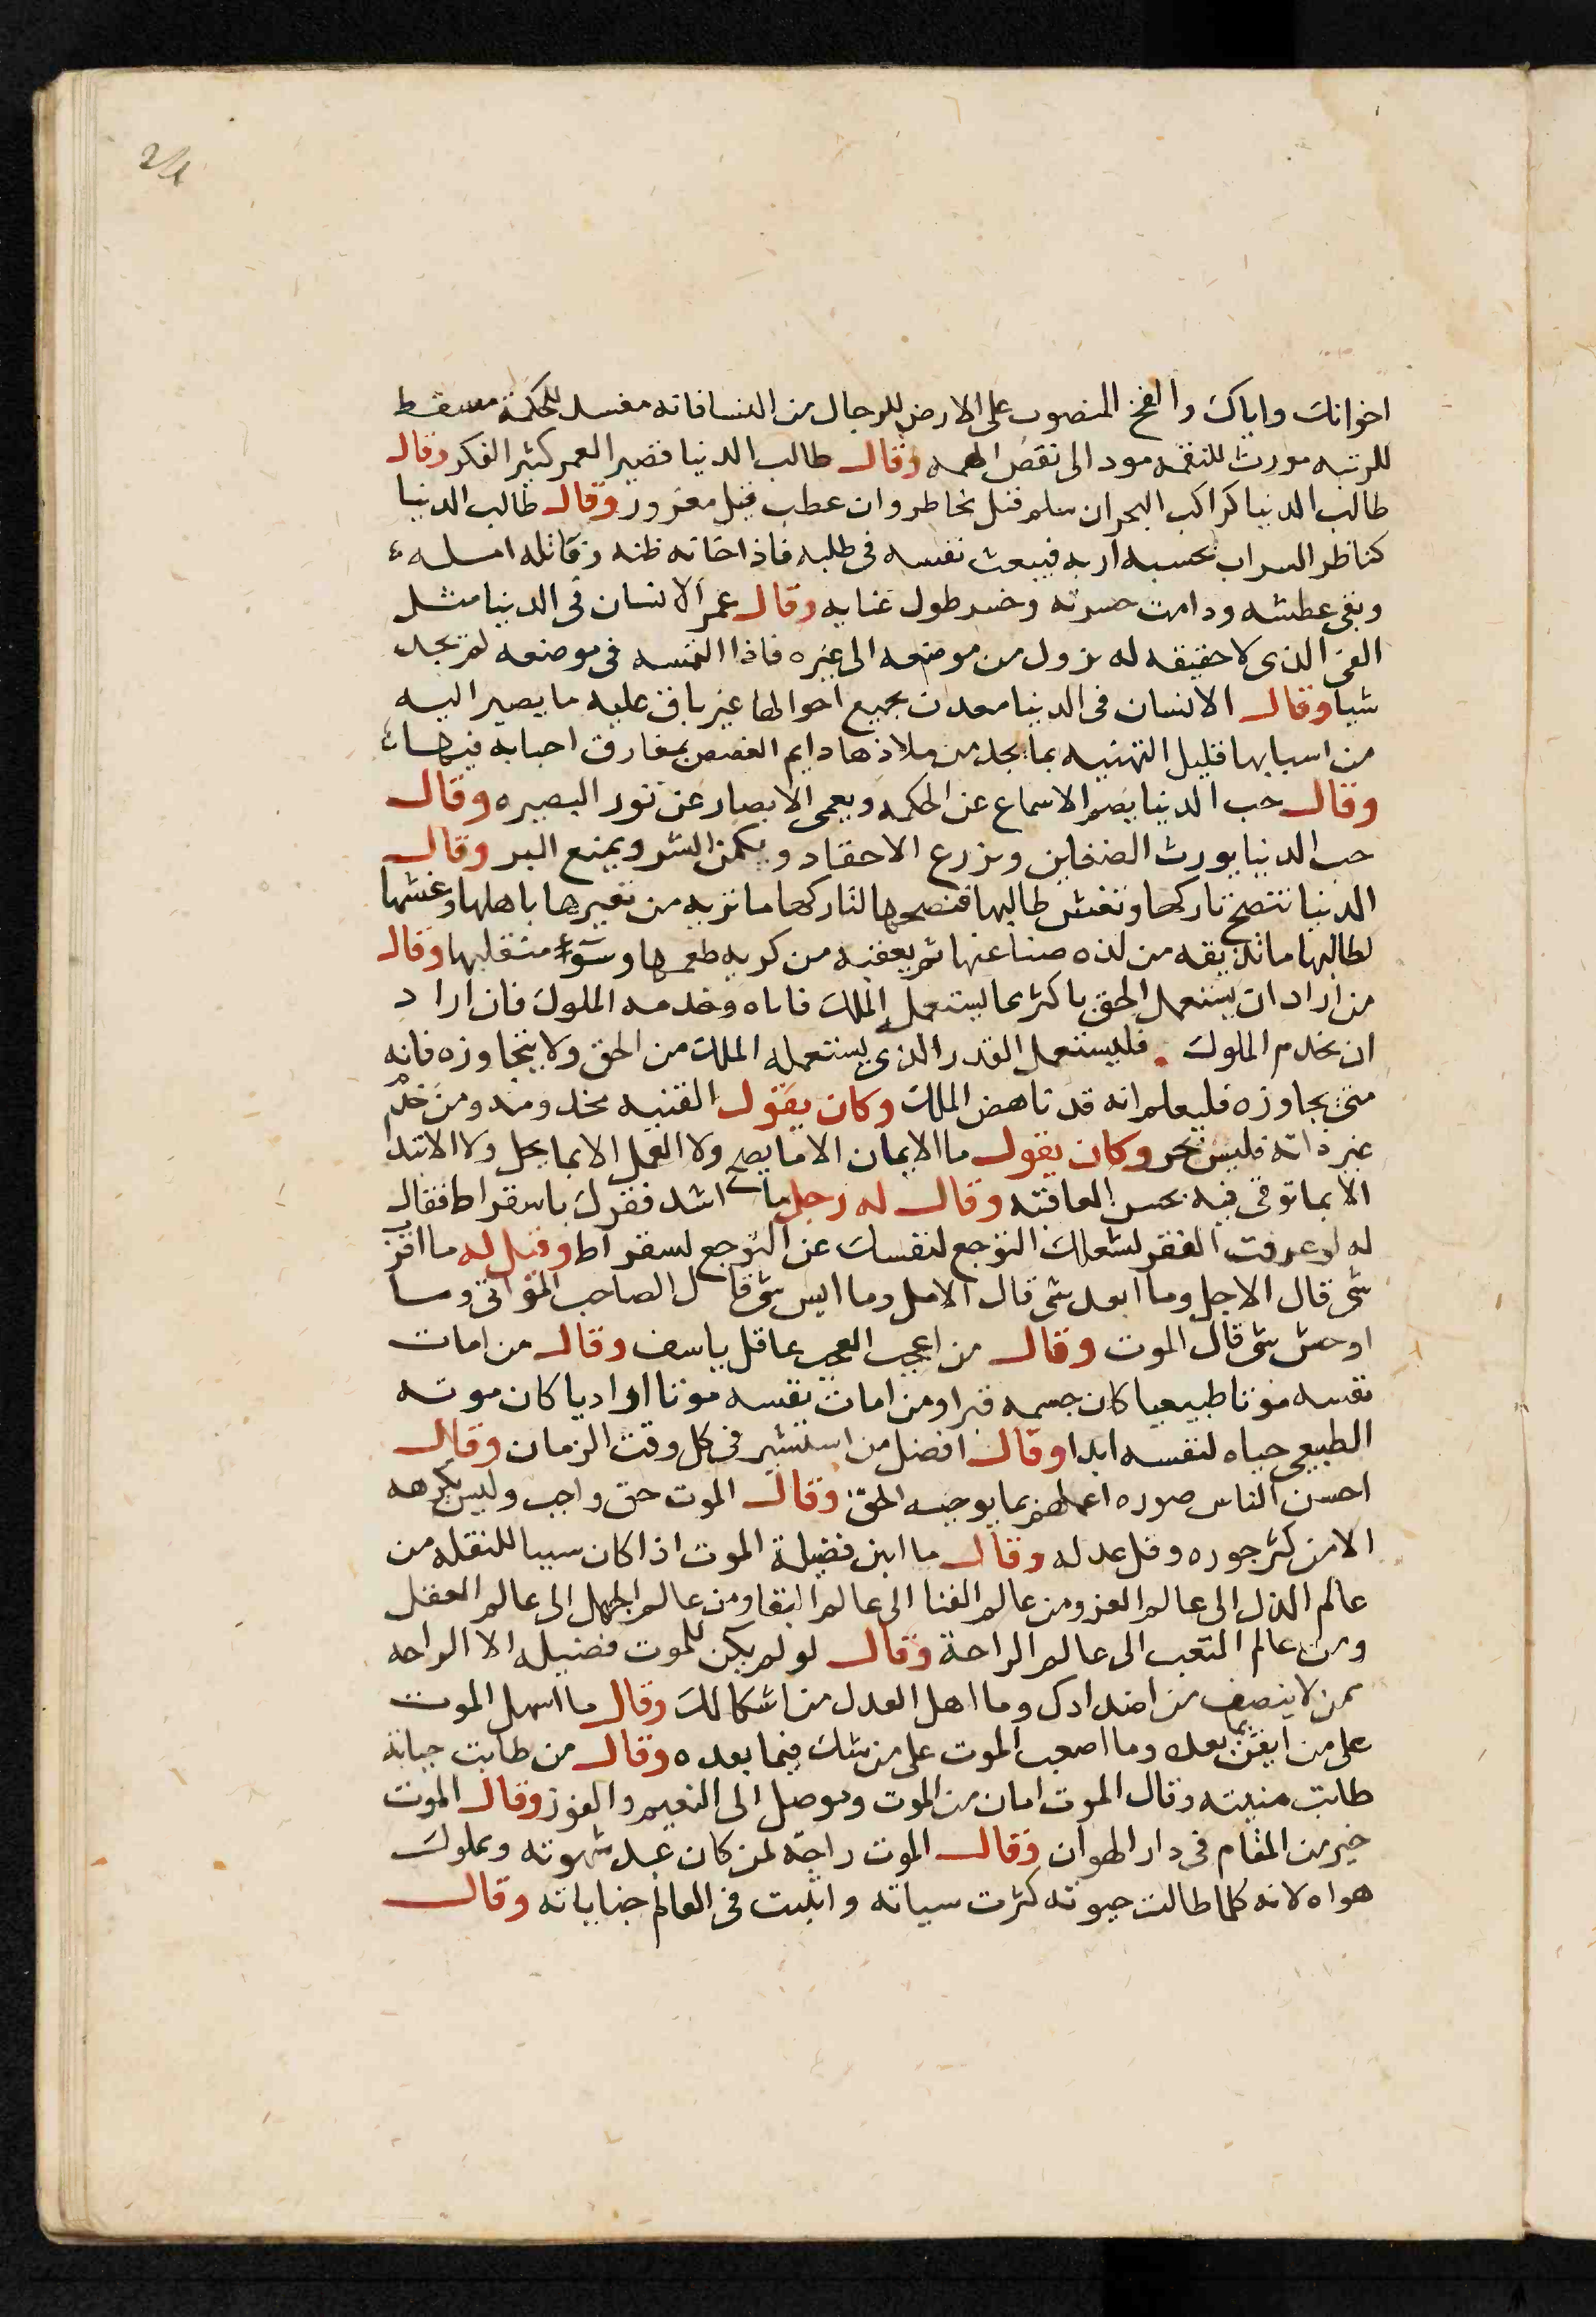 24
اخوانك واياك والفخ المنصوب على الارض للرجال من النسا فانه مفسد للحكمة مسقط
للرتبه مورث للنقمه مود الى نقص الهمه وقال طالب الدنيا قصير العمر كثير الفكر وقال
طالب الدنيا كراكب البحر ان سلم قيل مخاطر وان عطب قيل مغرور وقال طالب الدنيا
كناظر السراب يحسبه اربه فيبعث نفسه فى طلبه فاذا خانه ظنه وفاته امله
وبقى عطشه ودامت حسرته وخسر طول عنايه وقال عمر الانسان فى الدنيا مثل
الفى الذى لا حقيقه له يزول من موضعه الى غيره فاذا التمسه فى موضعه لم يجد
شيا وقال الانسان فى الدنيا معذب بجميع احوالها غير باق عليه ما يصير اليه
من اسبابها قليل التهنيه بما يجد من ملاذها دايم الغصص بمفارق احبابه فيها
وقال حب الدنيا يصم الاسماع عن الحكمه ويعمى الابصار عن نور البصيره وقال
حب الدنيا يورث الضغاين ويزرع الاحقاد ويكمن الشر ويمنع البر وقال
الدنيا تنصح تاركها وتغش طالبها فنصحها لتاركها ما تريه من تغيرها باهلها وغشها
لطالبها ما تذيقه من لذه ثم يعقبه من كريه طعمها وسوء منقلبها وقال
من اراد ان يستعمل الحق باكثر مما يستعمل الملك فاياه وخدمه الملوك فان اراد
ان يخدم الملوك فليستعمل القدر الذى يستعمله الملك من الحق ولا يتجاوزه فانه
متى يجاوزه فليعلم انه قد ناهض الملك وكان يقول القنيه مخدومه ومن خدم
غير ذاته فليس بحر وكان يقول ما الايمان الا ما يصح ولا العمل الا بما يحل ولا الابتدا
الا بما توقى فيه بحسن العاقبه وقال له رجل ما اشد فقرك يا سقراط فقال
له لو عرفت الفقر لشغلك التوجع لنفسك عن التوجع لسقراط وقيل له ما اقرب
شى قال الاجل وما ابعد شى قال الامل وما انس شى قال الصاحب المواتى وما
اوحش شى قال الموت وقال من اعجب العجب عاقل ياسف وقال من امات
نفسه موتا طبيعيا كان جسمه قبرا ومن امات نفسه موتا اراديا كان موته
الطبيعى حياه لنفسه ابدا وقال افضل من استشير فى كل وقت الزمان وقال
احسن الناس صوره اعملهم بما يوجبه الحق وقال الموت حق واجب وليس يكرهه
الا من كثر جوره وقل عدله وقال ما ابين فضيلة الموت اذا كان سببا للنقله من
عالم الذل الى عالم العز ومن عالم الفنا الى عالم البقا ومن عالم الجهل الى عالم العقل
ومن عالم التعب الى عالم الراحة وقال لو لم يكن للموت فضيله الا الراحه
ممن لا ينصف من اضدادك وما اهل العدل من اشكالك وقال ما اسهل الموت
على من ايقن بما بعده وما اصعب الموت على من شك فيما بعده وقال من طابت حياته
طابت منيته وقال الموت امان من الموت وموصل الى النعيم والفوز وقال الموت
خير من المقام فى دار الهوان وقال الموت راحة لمن كان عبد شهوته ومملوك
هواه لانه كلما طالت حيوته كثرت سياته وانبثت فى العالم جناياته وقال